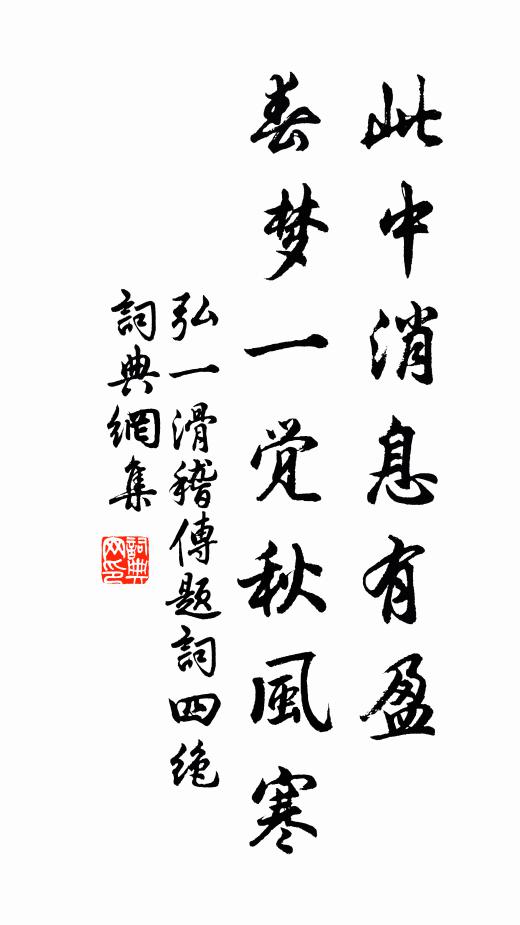 此中消息有盈
春梦一觉秋風寒
弘一滑稽傳題詞四絶
詞典網集
詞典网印